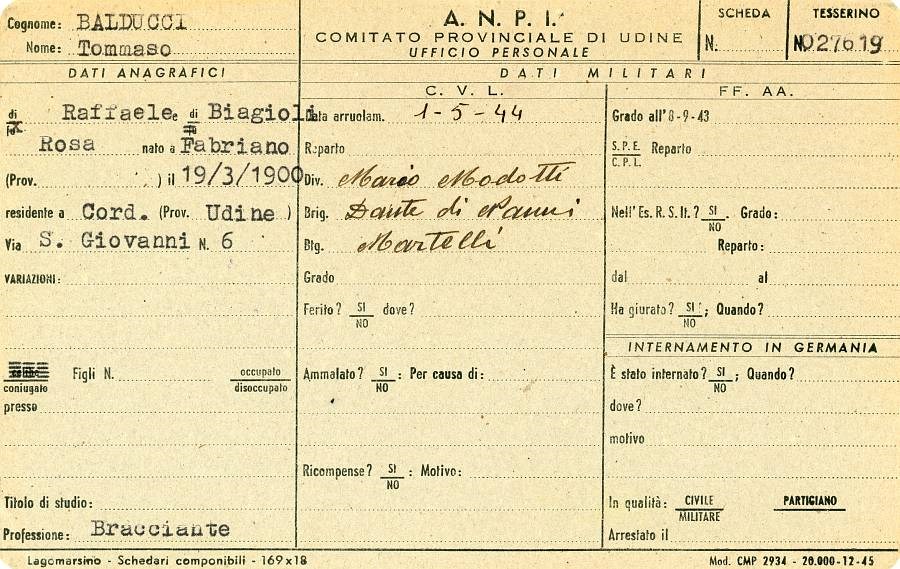 Cognome: BALDUCCI
Nome: Tommaso
A. N. P. I.
COMITATO PROVINCIALE DI UDINE
UFFICIO PERSONALE
SCHEDA
N.
TESSERINO
N. 027619
DATI ANAGRAFICI
di Raffaele e di Biagioli
Rosa nato a Fabriano
(Prov. ) il 19/3/1900
residente a Cord. (Prov. Udine )
Via S. Giovanni N. 6
VARIAZIONI:
coniugato Figli N. occupato
disoccupato
presso
Titolo di studio:
Professione: Bracciante
DATI MILITARI
C. V. L.
Data arruolam. 1-5-44
Reparto
Div. Mario Modotti
Brig. Dante di Nanni
Btg. Martelli
Grado
Ferito? SI dove?
NO
Ammalato? SI : Per causa di:
NO
Ricompense? SI : Motivo:
NO
FF. AA.
Grado all'8-9-43
S.P.E. Reparto
C.P.L.
Nell'Es. R. S. It.? SI . Grado:
NO
Reparto:
dal al
Ha giurato? SI ; Quando?
NO
INTERNAMENTO IN GERMANIA
È stato internato? SI ; Quando?
NO
dove?
motivo
In qualità: CIVILE PARTIGIANO
MILITARE
Arrestato il
Lagomarsino - Schedari componibili - 169x18
Mod. CMP 2934 - 20.000-12-45